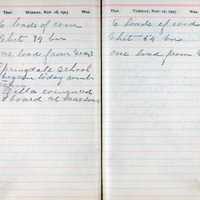 Ther. Monday, Nov. 16, 1903 Wea.
6 loads of corn
Shet 74 bu
one load from Geo's
Springdale School
began today
Zella comenced
board at Macson
Ther. Tuesday, Nov. 17, 1903 Wea.
6 loads of corn
Shet 64 bu
one load from